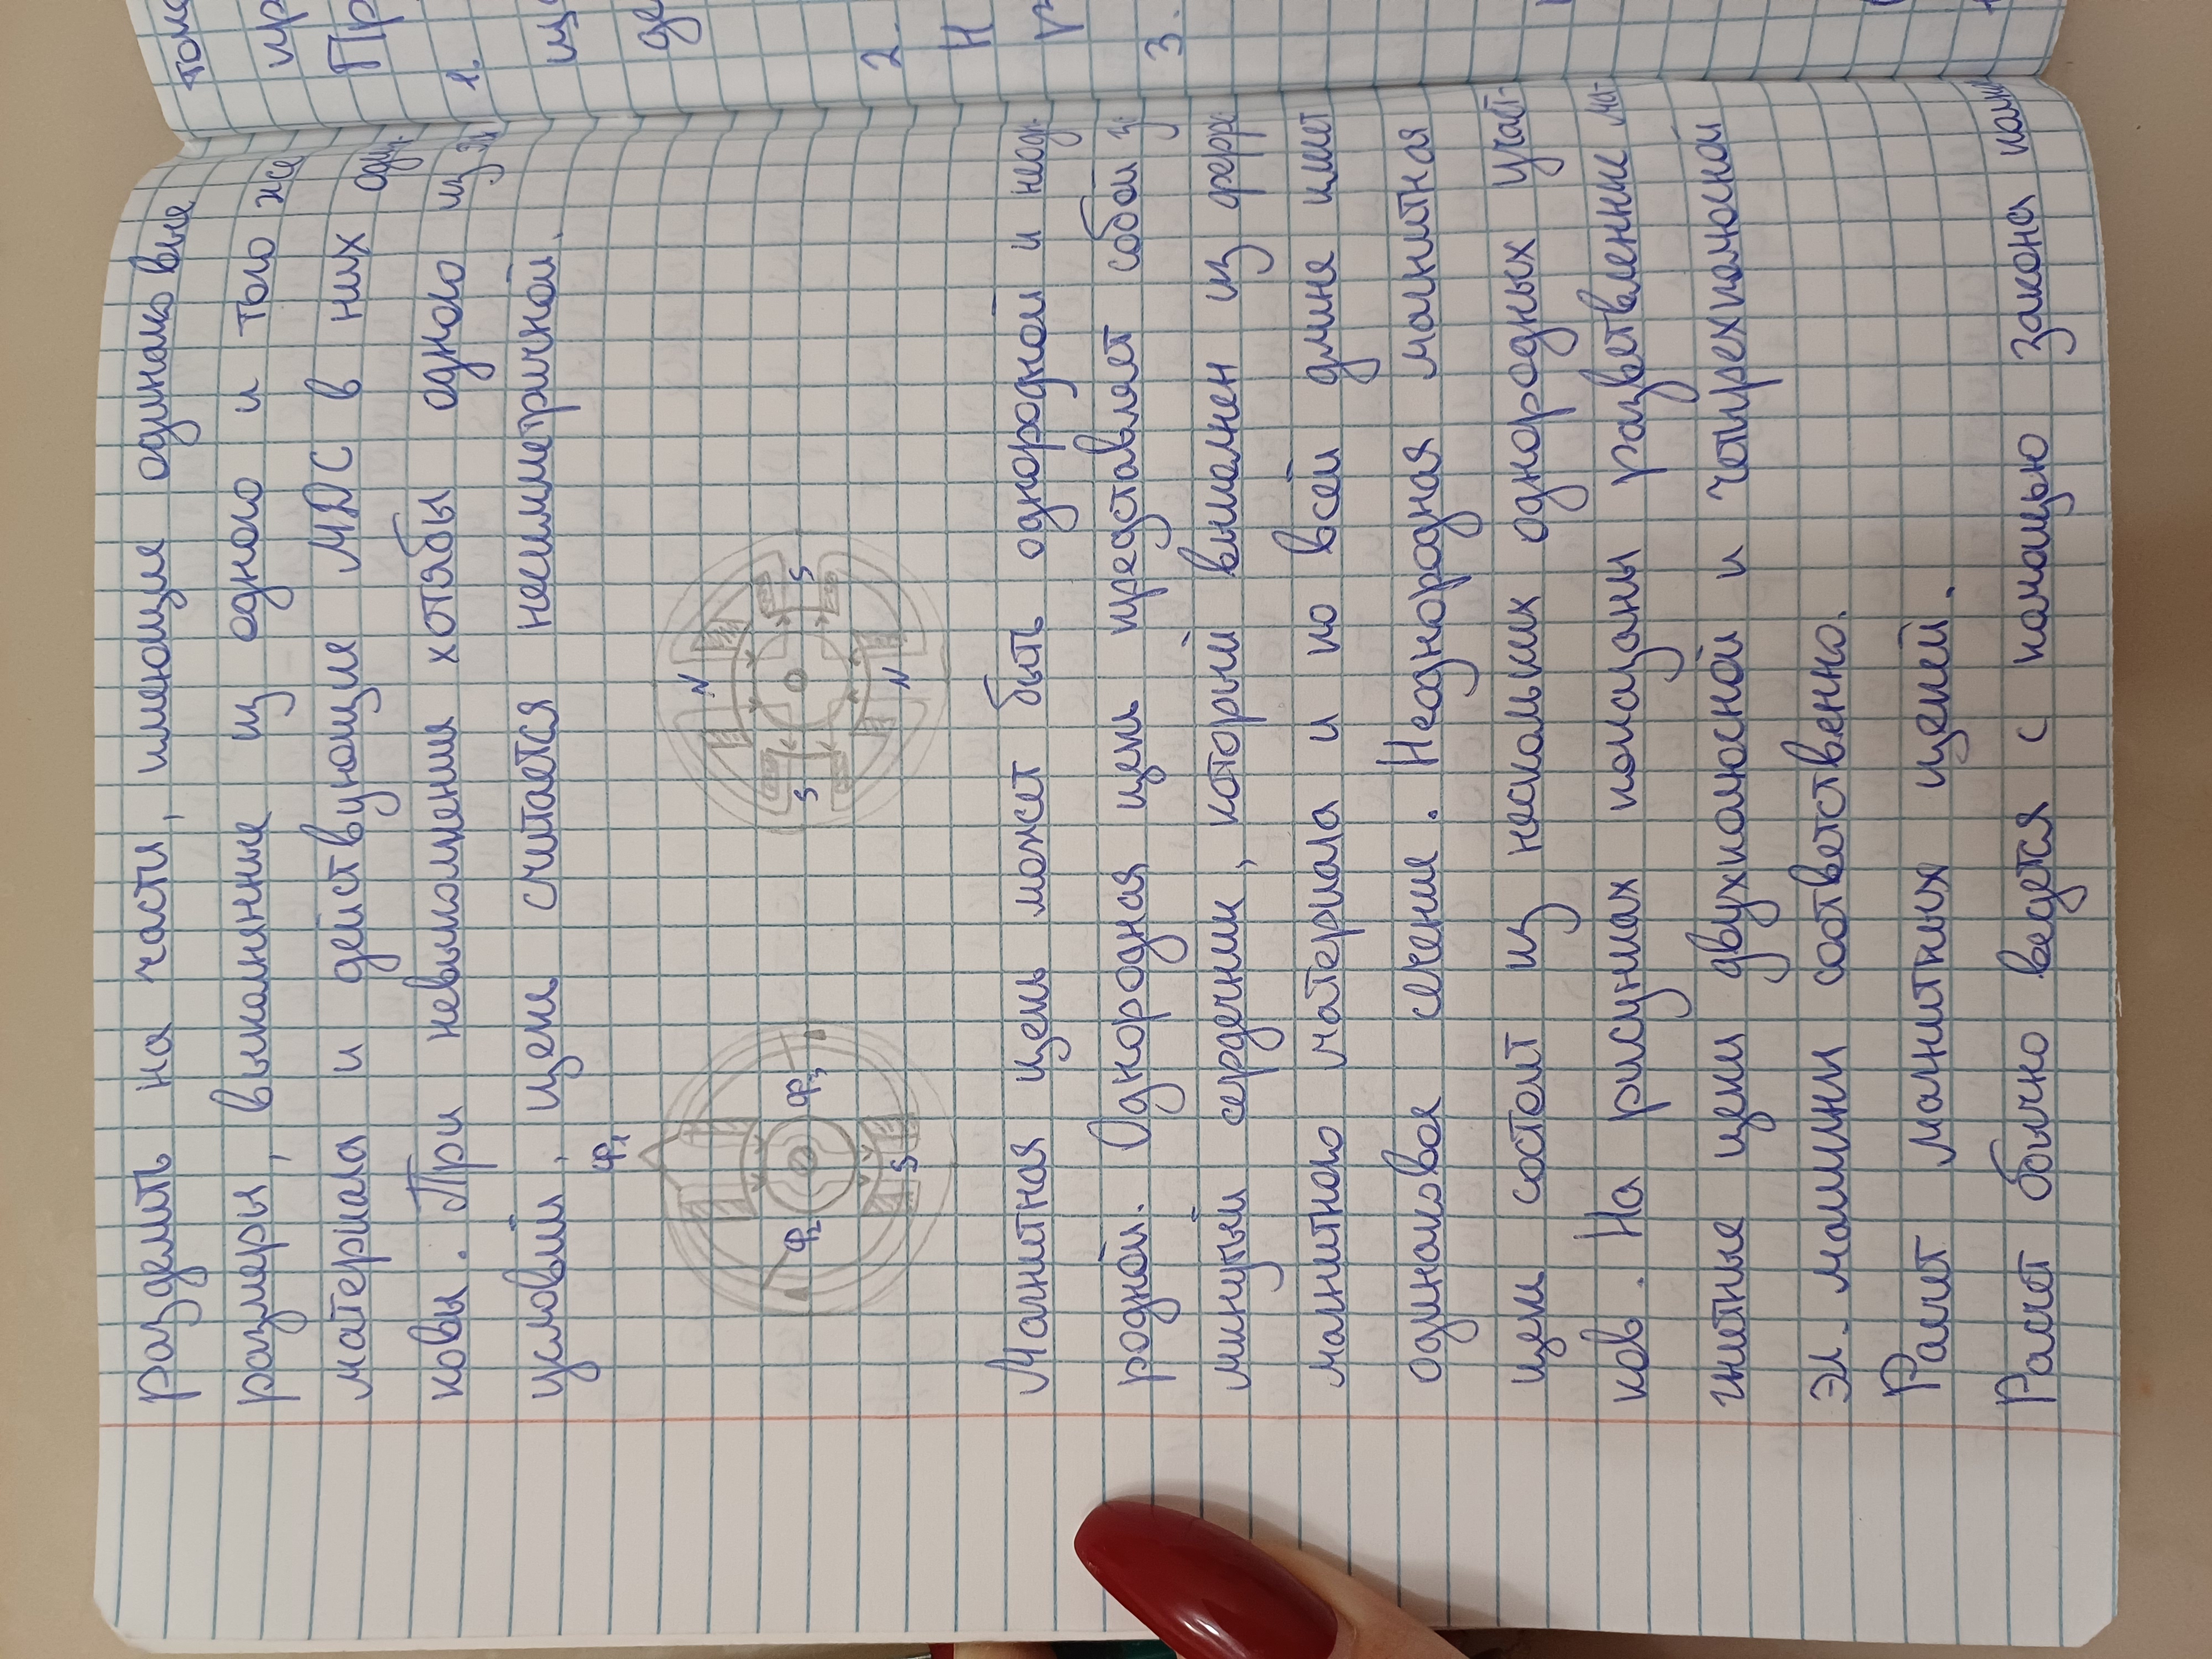 разделить на части, имеющие одинаковые
размеры, выполнение из одного и того же
материала и действующие МДС в них
ковы. При невыполнения хотябы одного из
условий, цепь считается несимметричной.
Ф₁
N
S
S
Ф₂
Ф₃
S
N
Магнитная цепь может быть однородной и неод-
родной. Однородная цепь представляет собой
мкнутый сердечник, который выполнен из ферр
магнитного материала и по всей длине имеет
одинаковое сечение. Неоднородная магнитная
цепь состоит из нескольких однородных участ-
ков. На рисунках показаны разветвленние ма-
гнитные цепи двухполюсной и четырехполюсной
эл. машини соответственно.
Расчет магнитных цепей.
Расчет обычно ведется с помощью закона полн
1.
2.
Н
3.